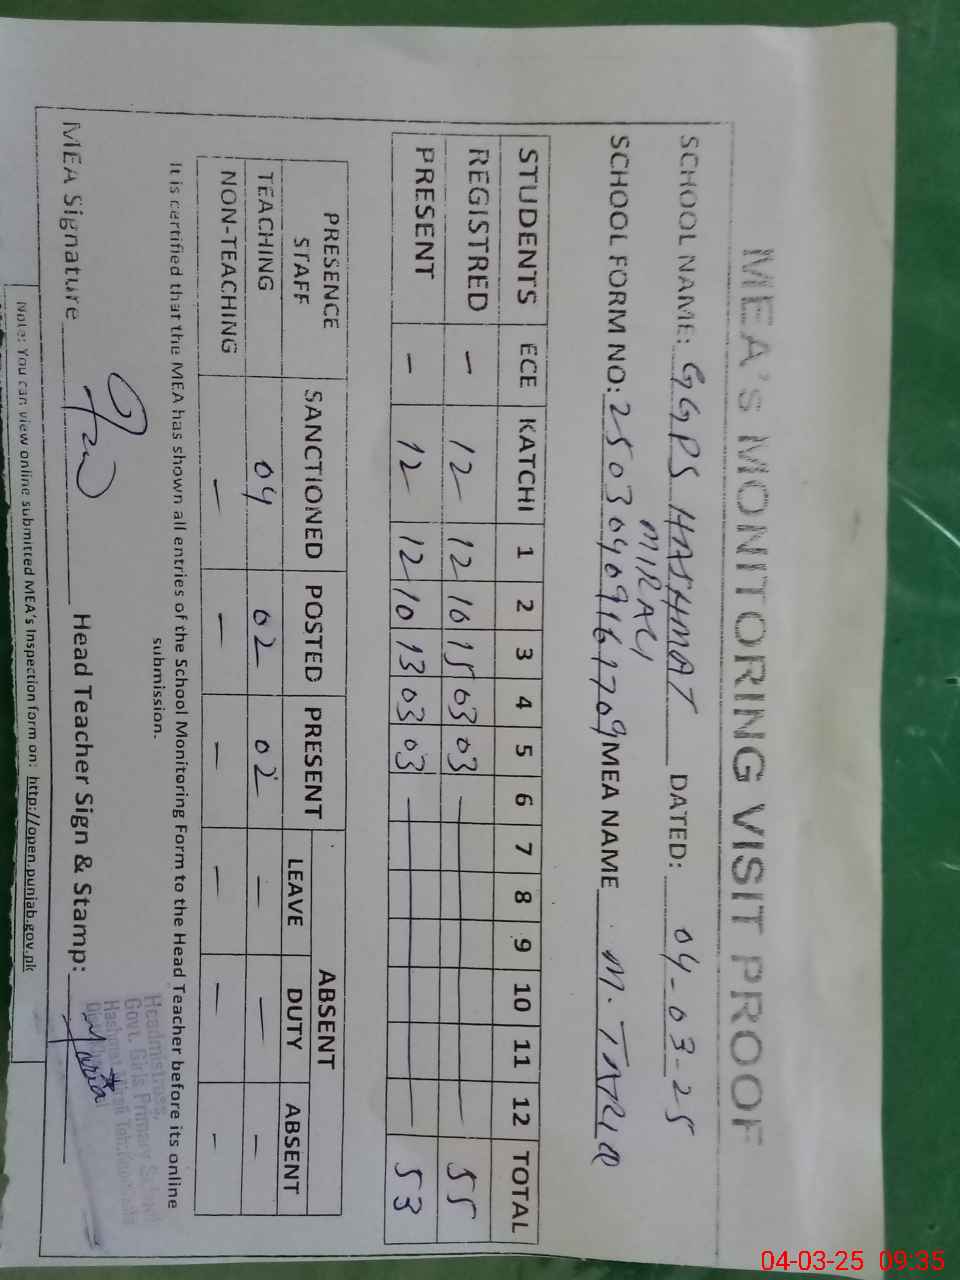 MEA'S MONITORING VISIT PROOF
SCHOOL NAME: GGPS HASHMAT DATED: 04-03-25
MIRALI
SCHOOL FORM NO: 25030409161709 MEA NAME M. TARIQ
STUDENTS ECE KATCHI 1 2 3 4 5 6 7 8 9 10 11 12 TOTAL
REGISTRED - 12 12 10 15 03 03 — 55
PRESENT - 12 12 10 13 03 03 — 53
PRESENCE STAFF SANCTIONED POSTED PRESENT ABSENT
LEAVE DUTY ABSENT
TEACHING 04 02 02 - - -
NON-TEACHING - - - - - -
It is certified that the MEA has shown all entries of the School Monitoring Form to the Head Teacher before its online
submission.
MEA Signature Head Teacher Sign & Stamp: Maria
Headmistress,
Govt. Girls Primary School
Hashmat Mirali
Note: You can view online submitted MEA's Inspection form on: http://open.punjab.gov.pk
04-03-25 09:35